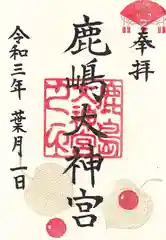 奉拝
鹿嶋大神宮
令和三年 葉月一日